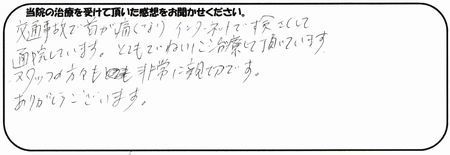 当院の治療を受けて頂いた感想をお聞かせください。
交通事故で首が痛くなり インターネットで検さくして
通院しています。とてもていねいに治療して頂いています
スタッフの方々も 非常に親切です。
ありがとうございます。